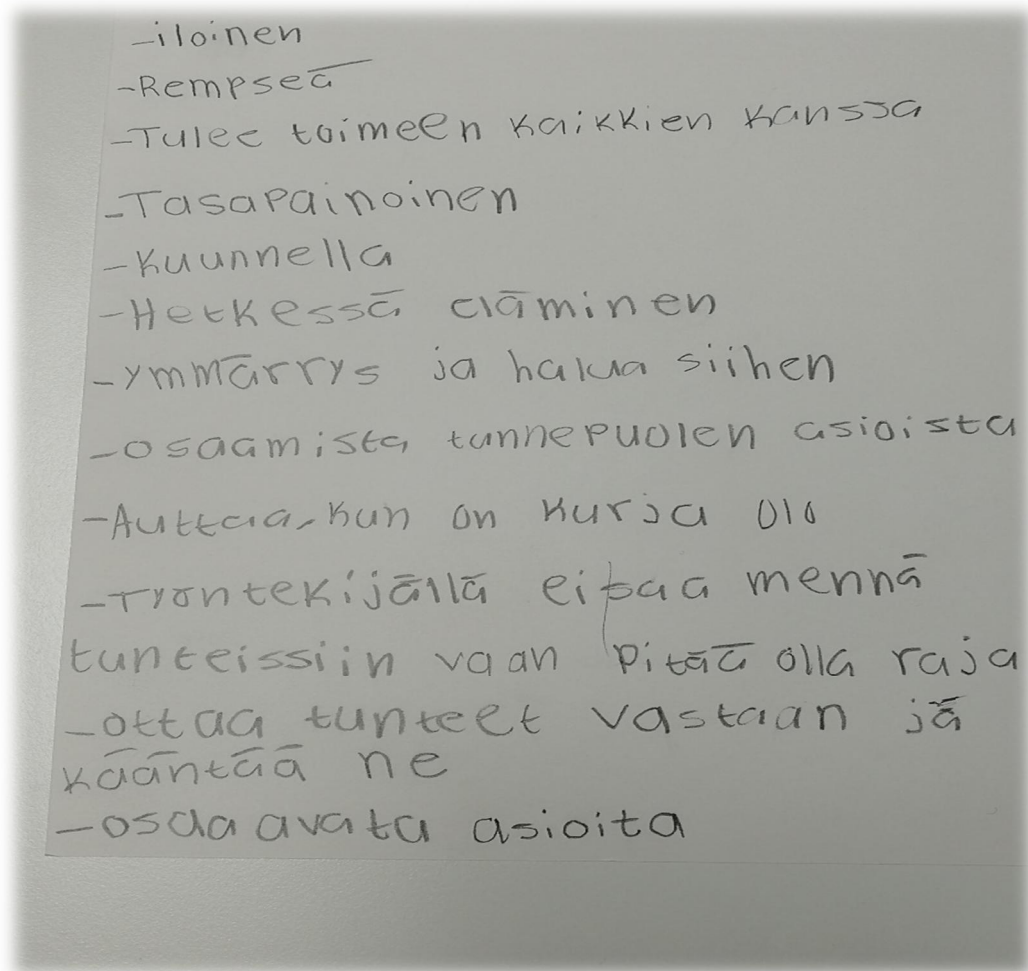 -iloinen
-Rempseä
-Tulee toimeen kaikkien kanssa
-Tasapainoinen
-Kuunnella
-Hetkessä eläminen
-ymmärrys ja halua siihen
-osaamista tunnepuolen asioista
-Auttaa, kun on kurja olo
-Työntekijällä ei saa mennä
tunteissiin vaan pitää olla raja
-ottaa tunteet vastaan jä
kääntää ne
-osaa avata asioita